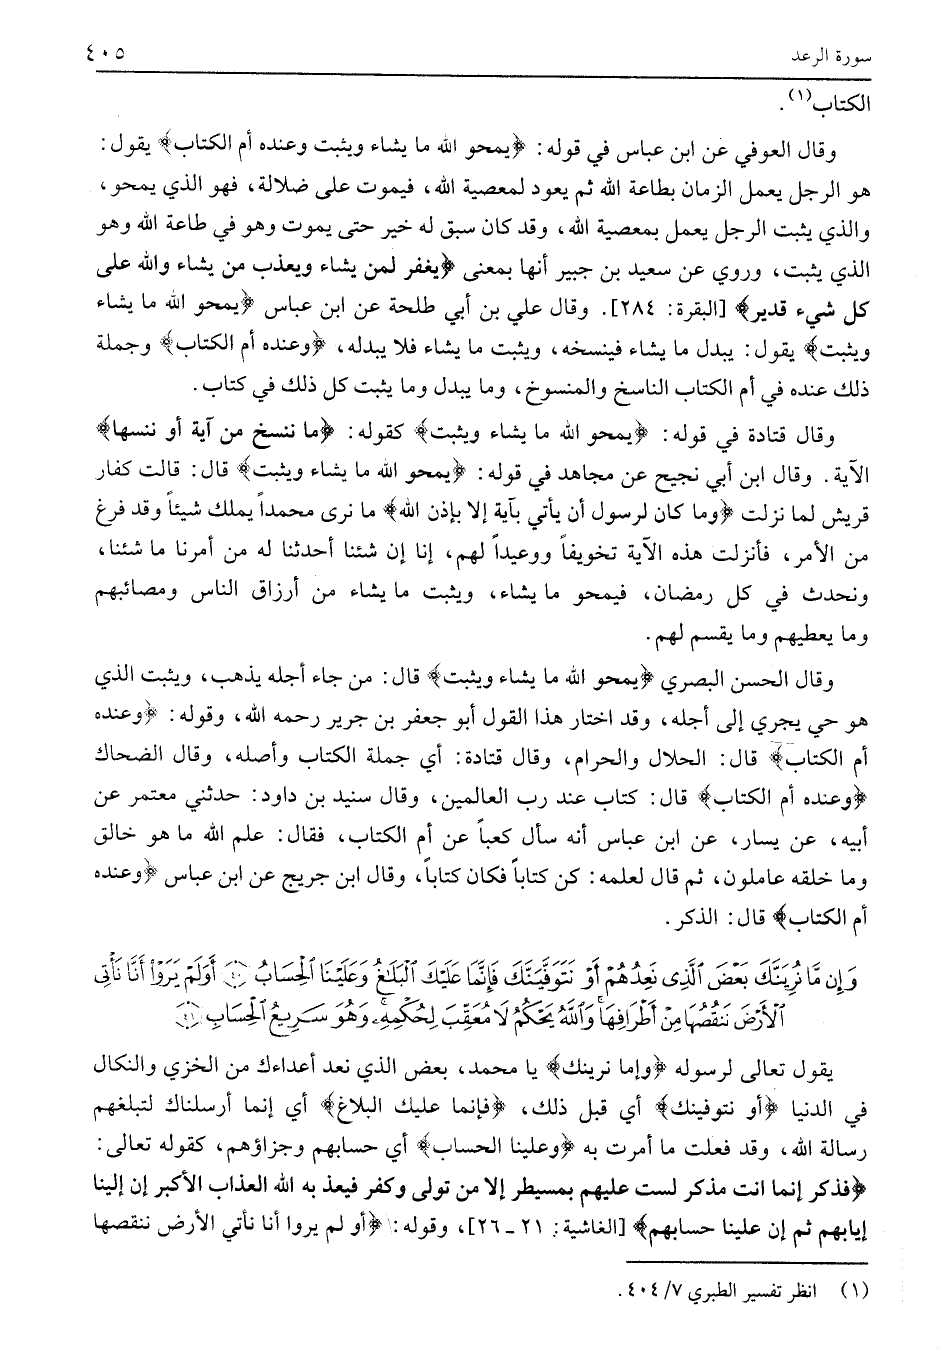 سورة الرعد
٤٠٥
الكتاب(١).
وقال العوفي عن ابن عباس في قوله: ﴿يمحو الله ما يشاء ويثبت وعنده أم الكتاب﴾ يقول:
هو الرجل يعمل الزمان بطاعة الله ثم يعود لمعصية الله، فيموت على ضلالة، فهو الذي يمحو،
والذي يثبت الرجل يعمل بمعصية الله، وقد كان سبق له خير حتى يموت وهو في طاعة الله وهو
الذي يثبت، وروي عن سعيد بن جبير أنها بمعنى ﴿يغفر لمن يشاء ويعذب من يشاء والله على
كل شيء قدير﴾ [البقرة: ٢٨٤]. وقال علي بن أبي طلحة عن ابن عباس ﴿يمحو الله ما يشاء
ويثبت﴾ يقول: يبدل ما يشاء فينسخه، ويثبت ما يشاء فلا يبدله، ﴿وعنده أم الكتاب﴾ وجملة
ذلك عنده في أم الكتاب الناسخ والمنسوخ، وما يبدل وما يثبت كل ذلك في كتاب.
وقال قتادة في قوله: ﴿يمحو الله ما يشاء ويثبت﴾ كقوله: ﴿ما ننسخ من آية أو ننسها﴾
الآية. وقال ابن أبي نجيح عن مجاهد في قوله: ﴿يمحو الله ما يشاء ويثبت﴾ قال: قالت كفار
قريش لما نزلت ﴿وما كان لرسول أن يأتي بآية إلا بإذن الله﴾ ما نرى محمداً يملك شيئاً وقد فرغ
من الأمر، فأنزلت هذه الآية تخويفاً ووعيداً لهم، إنا إن شئنا أحدثنا له من أمرنا ما شئنا،
ونحدث في كل رمضان، فيمحو ما يشاء، ويثبت ما يشاء من أرزاق الناس ومصائبهم
وما يعطيهم وما يقسم لهم.
وقال الحسن البصري ﴿يمحو الله ما يشاء ويثبت﴾ قال: من جاء أجله يذهب، ويثبت الذي
هو حي يجري إلى أجله، وقد اختار هذا القول أبو جعفر بن جرير رحمه الله، وقوله: ﴿وعنده
أم الكتاب﴾ قال: الحلال والحرام، وقال قتادة: أي جملة الكتاب وأصله، وقال الضحاك
﴿وعنده أم الكتاب﴾ قال: كتاب عند رب العالمين، وقال سنيد بن داود: حدثني معتمر عن
أبيه، عن يسار، عن ابن عباس أنه سأل كعباً عن أم الكتاب، فقال: علم الله ما هو خالق
وما خلقه عاملون، ثم قال لعلمه: كن كتاباً فكان كتاباً، وقال ابن جريج عن ابن عباس ﴿وعنده
أم الكتاب﴾ قال: الذكر.
وَإِن مَّا نُرِيَنَّكَ بَعْضَ ٱلَّذِى نَعِدُهُمْ أَوْ نَتَوَفَّيَنَّكَ فَإِنَّمَا عَلَيْكَ ٱلْبَلَٰغُ وَعَلَيْنَا ٱلْحِسَابُ ﴿٤٠﴾ أَوَلَمْ يَرَوْا۟ أَنَّا نَأْتِى
ٱلْأَرْضَ نَنقُصُهَا مِنْ أَطْرَافِهَا ۚ وَٱللَّهُ يَحْكُمُ لَا مُعَقِّبَ لِحُكْمِهِۦ ۚ وَهُوَ سَرِيعُ ٱلْحِسَابِ ﴿٤١﴾
يقول تعالى لرسوله ﴿وإما نرينك﴾ يا محمد، بعض الذي نعد أعداءك من الخزي والنكال
في الدنيا ﴿أو نتوفينك﴾ أي قبل ذلك، ﴿فإنما عليك البلاغ﴾ أي إنما أرسلناك لتبلغهم
رسالة الله، وقد فعلت ما أمرت به ﴿وعلينا الحساب﴾ أي حسابهم وجزاؤهم، كقوله تعالى:
﴿فذكر إنما انت مذكر لست عليهم بمسيطر إلا من تولى وكفر فيعذ به الله العذاب الأكبر إن إلينا
إيابهم ثم إن علينا حسابهم﴾ [الغاشية: ٢١ -٢٦]، وقوله: ﴿أو لم يروا أنا نأتي الأرض ننقصها
(١) انظر تفسير الطبري ٧/ ٤٠٤.